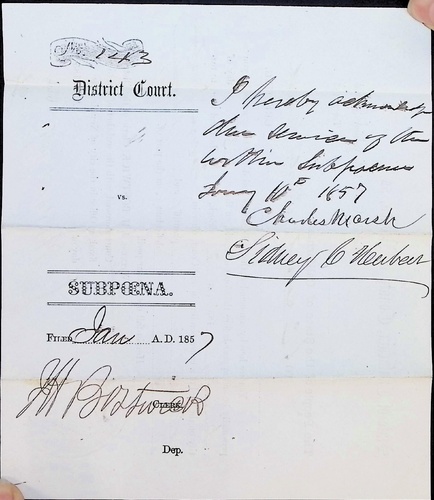 No. 143
District Court.
vs.
SUBPŒNA.
FILED Jan A. D. 1857
CLERK.
Dep.
I hereby acknowledge
the service of the
within Subpoena
10th 1857
Charles Marsh
Sidney C Herbert